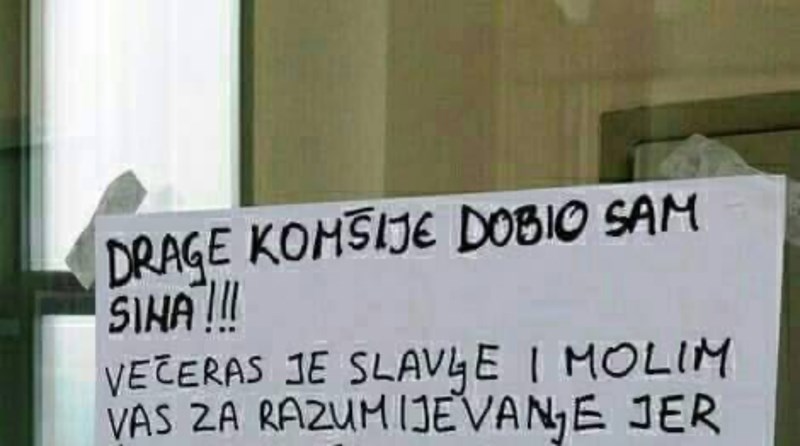 DRAGE KOMŠIJE DOBIO SAM
SINA!!!
VEČERAS JE SLAVLJE I MOLIM
VAS ZA RAZUMIJEVANJE JER